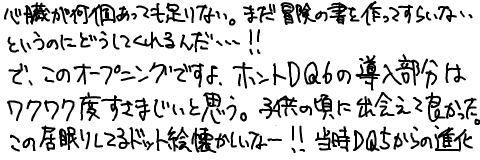 心臓が何個あっても足りない。まだ冒険の書を作ってすらいない
というのにどうしてくれるんだ…!!
で、このオープニングですよ、ホントDQ6の導入部分は
ワクワク度すさまじいと思う。子供の頃に出会えて良かった。
この居眠りしてるドット絵懐かしいなー!!当時DQ5からの進化